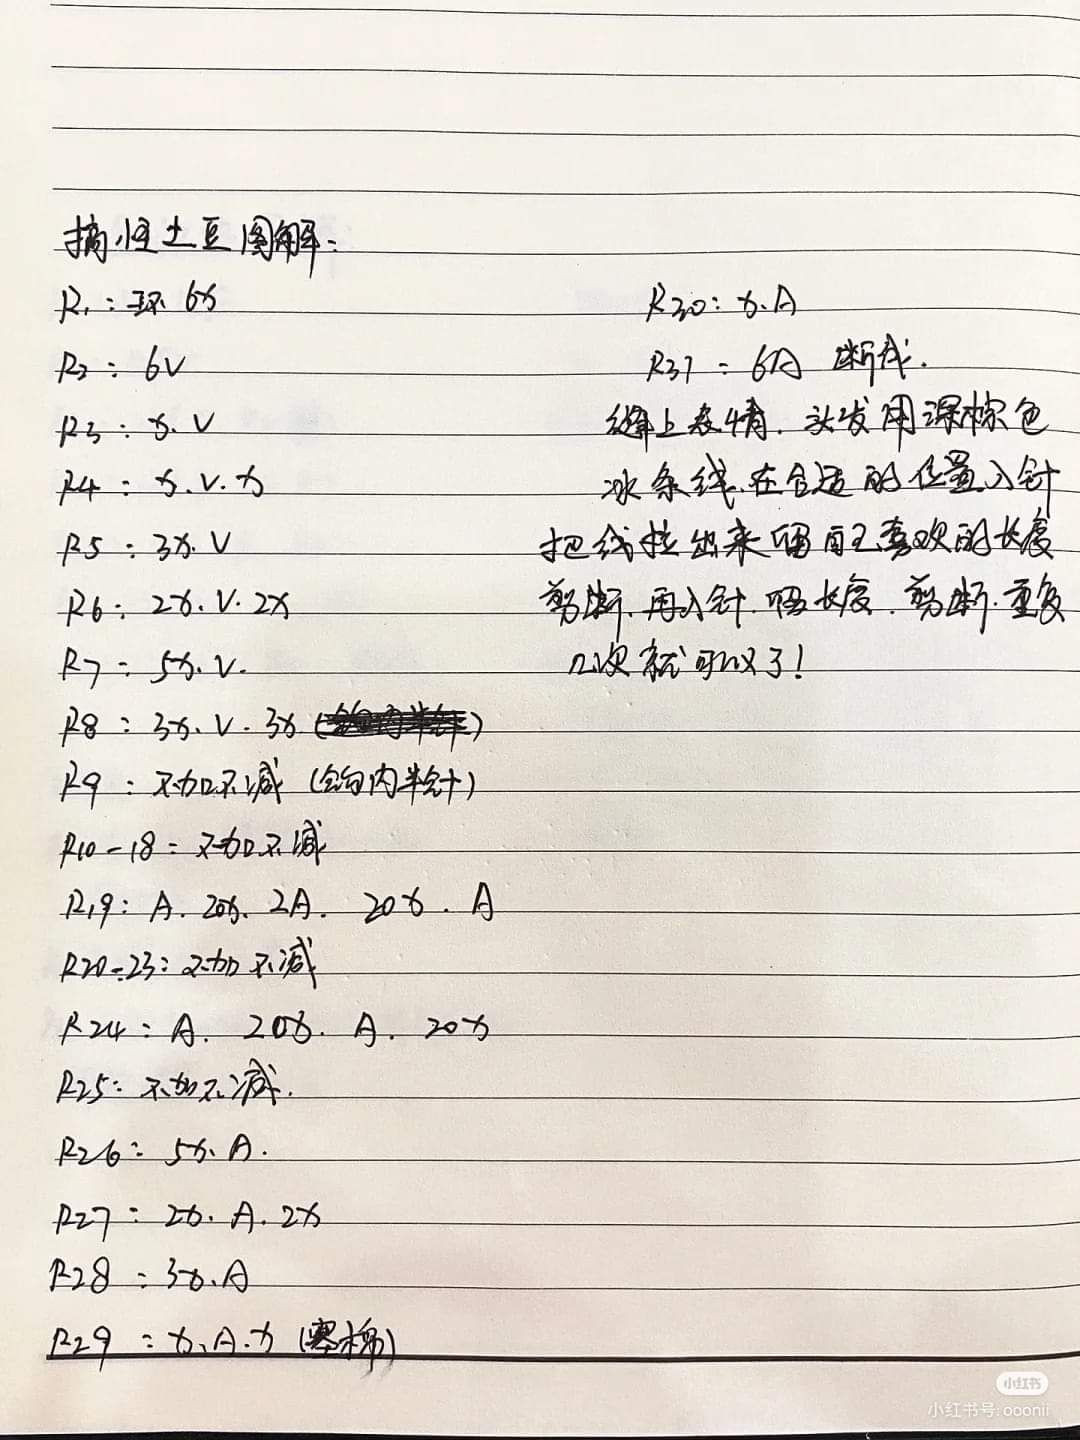 搞怪土豆图解:
R1: 环 6x
R2: 6V
R3: x.V
R4: x.V.x
R5: 3x.V
R6: 2x.V.2x
R7: 5x.V.
R8: 3x.V.3x
R9: 不加不减 (钩内半针)
R10-18: 不加不减
R19: A. 20x. 2A. 20x. A
R20-23: 不加不减
R24: A. 20x. A. 20x
R25: 不加不减.
R26: 5x.A.
R27: 2x.A.2x
R28: 3x.A
R29: x.A.x (塞棉)
R30: x.A
R31: 6A 断线.
缝上表情. 头发用深棕色
冰条线.在合适的位置入针
把线拉出来留自己喜欢的长度
剪断.再入针.留长度.剪断.重复
几次就可以了!
小红书
小红书号:ooonii